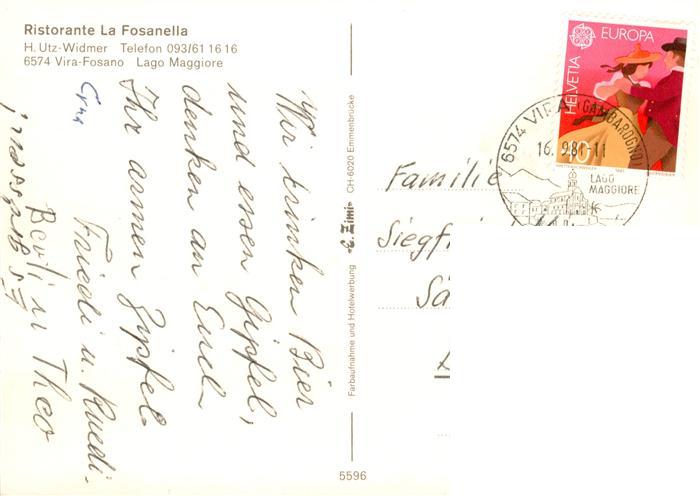 Ristorante La Fosanella
H. Utz-Widmer Telefon 093/61 16 16
6574 Vira-Fosano Lago Maggiore
Wir trinken Bier
und essen Gipfel,
denken an Euch
Ihr armen Zipfel
Fridi u. Ruedi
Theo
Farbaufnahme und Hotelwerbung «E. Zimi» CH-6020 Emmenbrücke
5596
HELVETIA
EUROPA
40
6574 VIRA (GAMBAROGNO)
16.9.81-11
LAGO
MAGGIORE
Familie
Siegf